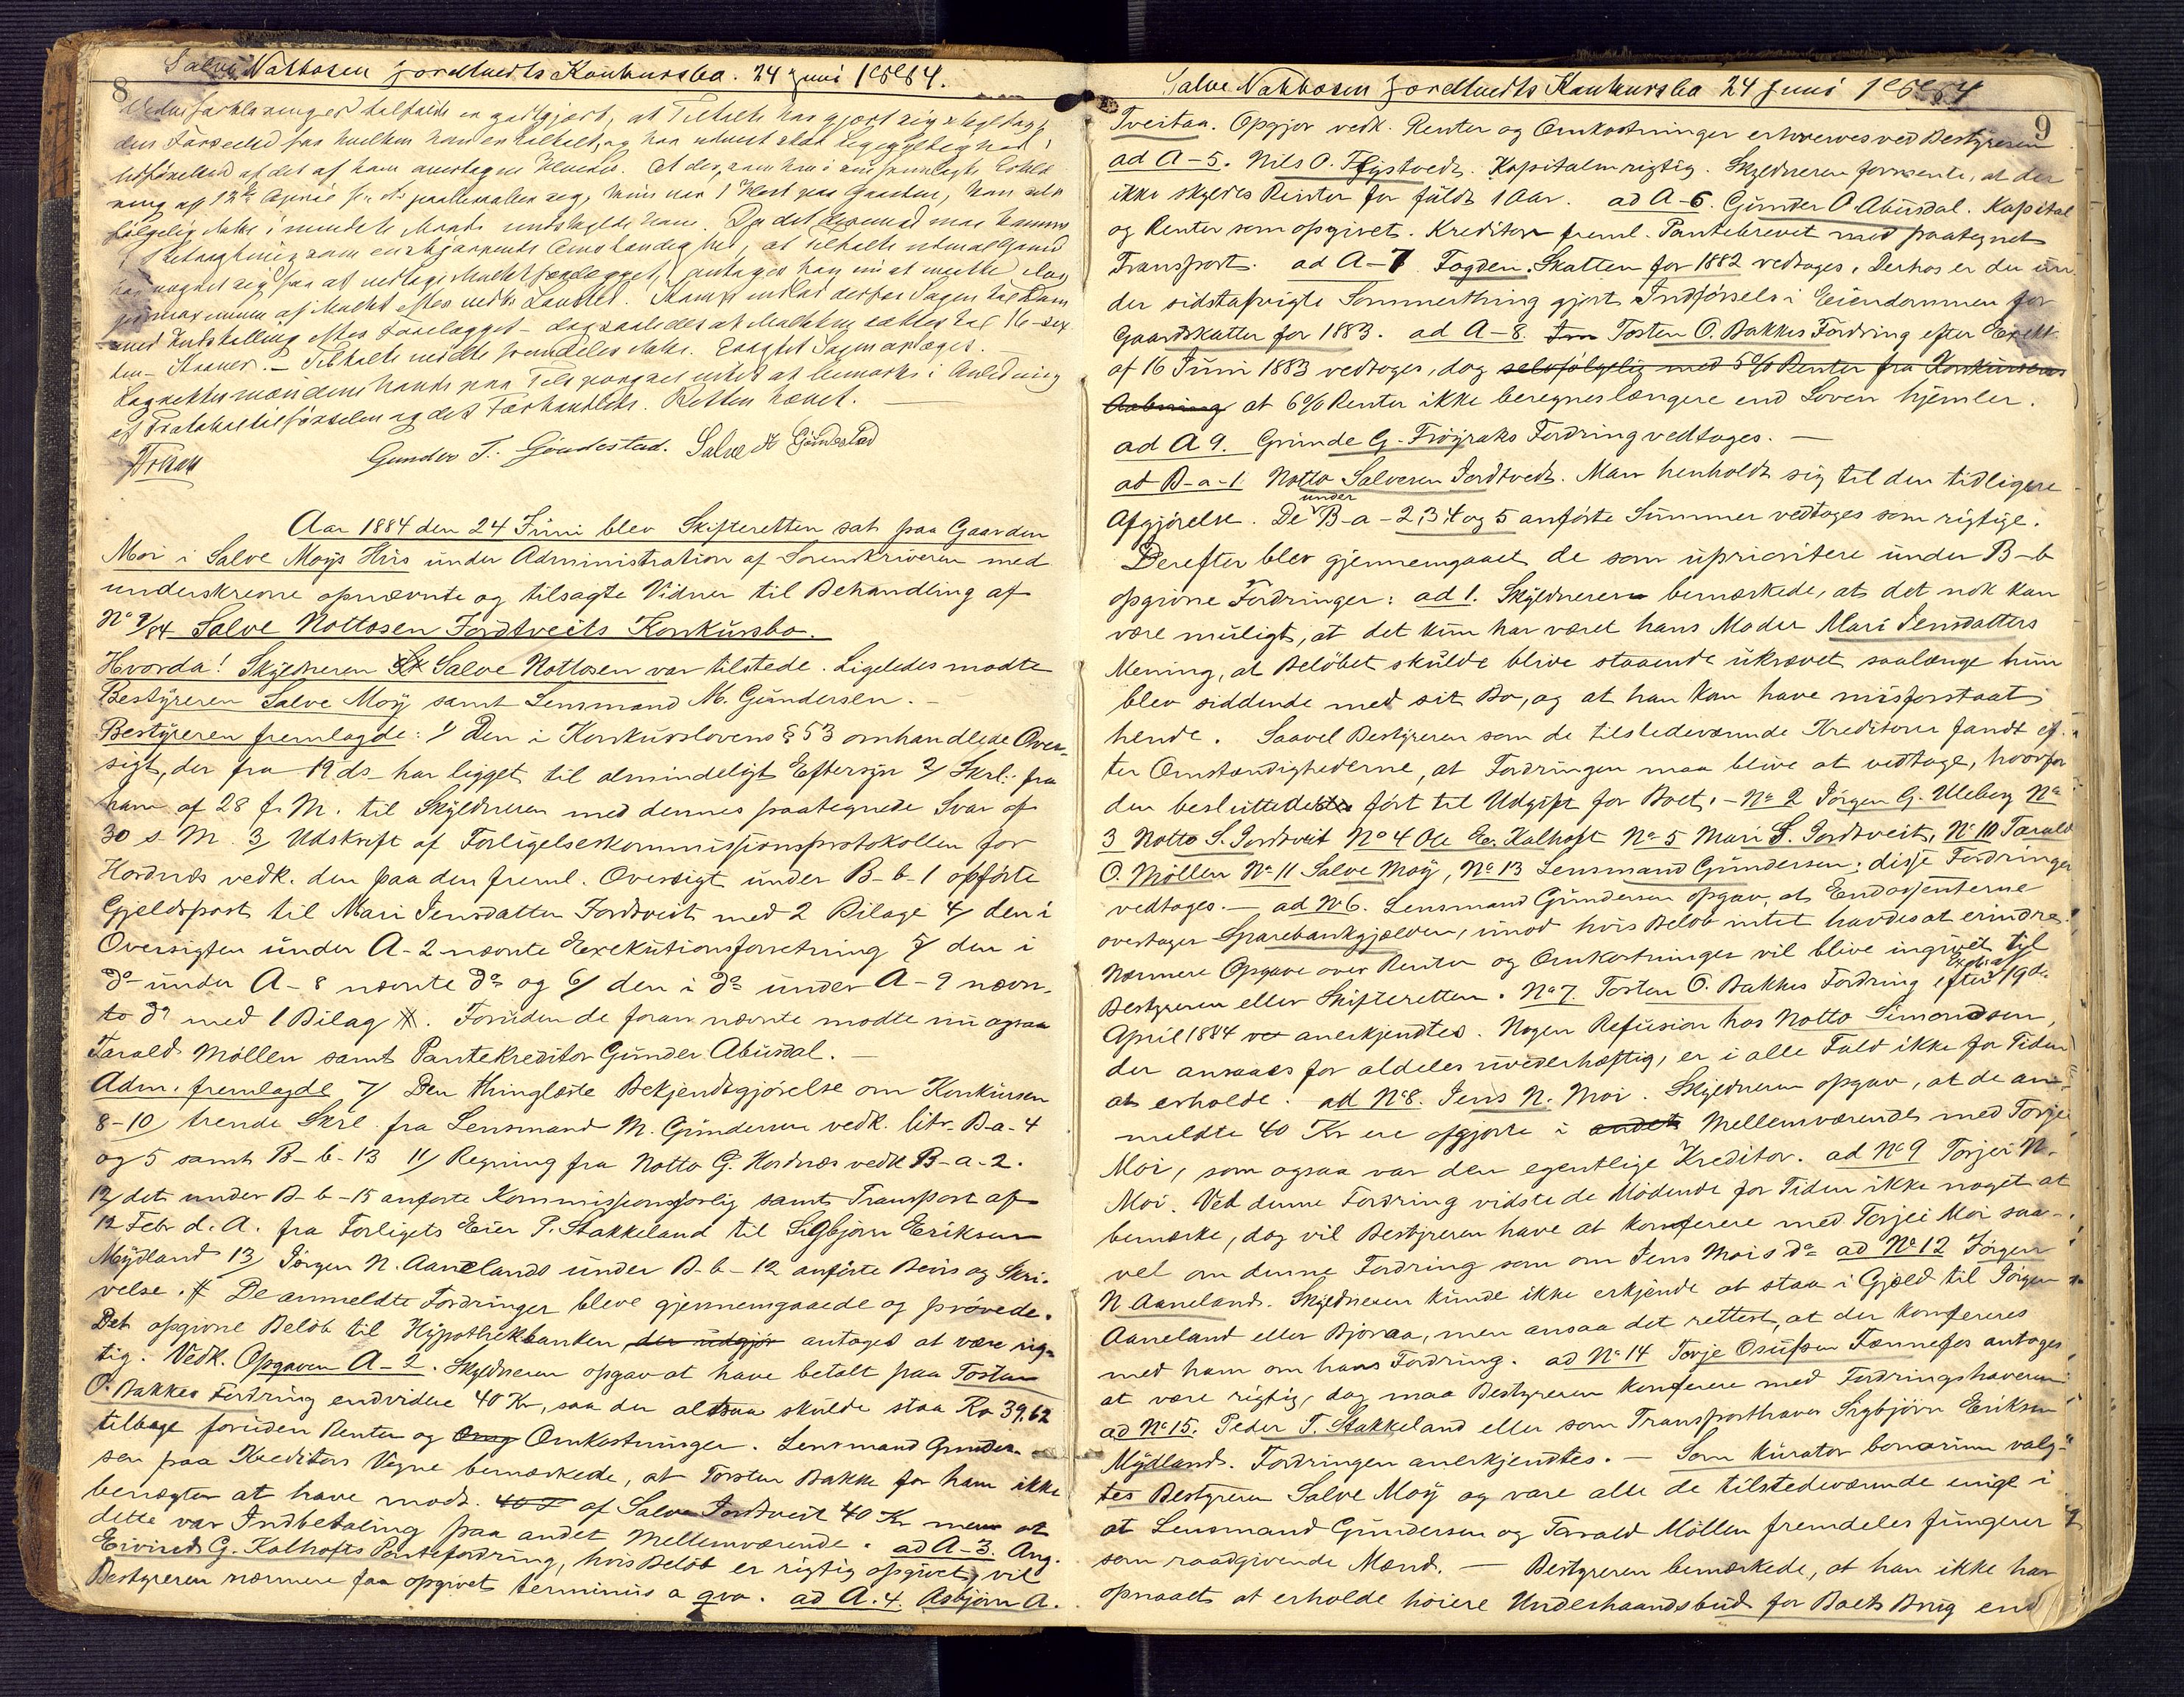 8
Salve Nottosen Jordtvedts Konkursbo. 24 Juni 1884.
den Forseelse for hvilken han er tiltalt, og har udvist stor Ligegyldighed i
Udførelsen af det af ham overtagne Hverv. At der, som han i sin fremlagte Erklæ-
ring af 12te April paaberaaber sig, kun var 1 Hest paa Gaarden, kan selv-
følgelig ikke i mindste Maade undskylde ham.
med Indstilling efter Forelægget
ten Kroner. Tiltalte mødte fremdeles ikke.
Lagrettesmændene havde paa Tilspørgsel intet at bemærke i Anledning
af Protokoltilførselen og det Forhandlede. Retten hævet.
Gunder T. Gjøndestad. Salve K Gjøndestad
Aar 1884 den 24 Juni blev Skifteretten sat paa Gaarden
Moi i Salve Moys Hus under Administration af Sorenskriveren med
underskrevne opnævnte og tilsagte Vidner til Behandling af
No 9/84 Salve Nottosen Jordtveits Konkursbo.
Hvorda! Skyldneren Salve Nottosen var tilstede. Ligeledes mødte
Bestyreren Salve Moy samt Lensmand M. Gundersen. -
Bestyreren fremlagde: 1/ Den i Konkurslovens § 53 omhandlede Over-
sigt, der fra 19 ds har ligget til almindeligt Eftersyn 2/ Skrl. fra
ham af 28 f. M. til Skyldneren med dennes paategnede Svar af
30 s. M. 3/ Udskrift af Forligelseskommissjonsprotokollen for
Hordnæs vedk. den paa den freml. Oversigt under B-b-1 opførte
Gjeldspost til Mari Jensdatter Jordtveit med 2 Bilage 4/ den i
Oversigten under A-2 nævnte Exekutionsforretning 5/ den i
do under A-8 nævnte do og 6/ den i do under A-9 nævn-
te do med 1 Bilag #. Foruden de foran nævnte mødte nu ogsaa
Tarald Møllen samt Pantekreditor Gunder Abusdal. -
Adm. fremlagde 7/ Den thinglæste Bekjendtgjørelse om Konkursen
8-10/ trende Skrl. fra Lensmand M. Gundersen vedk. litr. B-a-4
og 5 samt B-b-13 11/ Regning fra Notto G. Hordnæs vedk B-a-2.
12/ det under B-b-15 anførte Kommissjonsforlig samt Transport af
12 Febr d. A. fra Forligets Eier P. Stakkeland til Sigbjørn Eriksen
Mydland 13/ Jørgen N. Aanelands under B-b-12 anførte Bevis og Skri-
velse. # De anmeldte Fordringer bleve gjennemgaaede og prøvede.
Det opgivne Beløb til Hypothekbanken der udgjør antoges at være rig-
tig. Vedk. Opgaven A-2. Skyldneren opgav at have betalt paa Tosten
O. Bakkes Fordring endvidere 40 Kr, saa der altsaa skulde staa Kr 39,62
tilbage foruden Renter og Omkostninger. Lensmand Gunder-
sen paa Kreditors Vegne bemærkede, at Torsten Bakke for ham ikke
benægter at have modt. af Salve Jordtveit 40 Kr men at
dette var Indbetaling paa andet Mellemværende. ad A-3. Ang.
Eivind G. Kalhofts Pantefordring, hvis Beløb er rigtig opgivet, vil
Bestyreren nærmere faa opgivet terminus a qvo. ad A.4. Asbjørn A.
Salve Nottosen Jordtvedts Konkursbo 24 Juni 1884
9
Tveitaa. Opgjør vedk. Renter og Omkostninger erhverves ved Bestyreren
ad A-5. Nils O. Høystvedt. Kapitalen rigtig. Skyldneren formente, at der
ikke skyldes Renter for fuldt 1 Aar. ad A-6. Gunder O Abusdal. Kapital
og Renter som opgivet. Kreditor freml. Pantebrevet med paategnet
Transport. ad A-7 Fogden. Skatten for 1882 vedtages. Derhos er der un-
der sidstafvigte Sommerthing gjort Indførsel i Eiendommen for
Gaardskatter for 1883. ad A-8. Tosten O. Bakkes Fordring efter Exekt.
af 16 Juni 1883 vedtoges, dog selvfølgelig med 5% Renter fra Konkursens
Aabning at 6% Renter ikke beregnes længere end Loven hjemler.
ad A 9. Gunde G. Frøyraks Fordring vedtages. -
ad B-a-1 Notto Salvesen Jordtvedt. Man henholdt sig til den tidligere
Afgjørelse. De under B-a-2, 3 4 og 5 anførte Summer vedtages som rigtige.
Derefter blev gjennemgaaet de som uprioritere under B-b
opgivne Fordringer: ad 1. Skyldneren bemærkede, at det nok kan
være muligt, at det kun har været hans Moder Mari Jensdatters
Mening, at Beløbet skulde blive staaende ukrævet saalænge hun
blev siddende med sit Bo, og at han kan have misforstaat
hende. Saavel Bestyreren som de tilstedeværende Kreditorer fandt ef-
ter Omstændighederne, at Fordringen maa blive at vedtage, hvorfor
den besluttedes ført til Udgift for Boet. - No 2 Jørgen G. Uleberg No
3 Notto S. Jordtveit No 4 Ole Ee. Kalhoft No 5 Mari S. Jordtveit, No 10 Tarald
O. Møllen No 11 Salve Moy, No 13 Lensmand Gundersen; disse Fordringer
vedtages. - ad No 6. Lensmand Gundersen opgav, at Endossenterne
overtager Sparebankgjælden, imod hvis Beløb intet havdes at erindre.
Nærmere Opgave over Renter og Omkostninger vil blive ingivet til
Bestyreren eller Skifteretten. No 7. Tosten O. Bakkes Fordring efter 19de
April 1884 anerkjendtes. Nogen Refusion hos Notto Simondsen,
der ansaaes for aldeles uvederhæftig, er i alle Fald ikke for Tiden
at erholde. ad No 8. Jens N. Moi. Skyldneren opgav, at de an-
meldte 40 Kr ere opgjorte i andet Mellemværende med Torjei
Moi, som ogsaa var den egentlige Kreditor. ad No 9 Torjei N.
Moi. Ved denne Fordring vidste de Mødende for Tiden ikke noget at
bemærke, dog vil Bestyreren have at konferere med Torjei Moi saa-
vel om denne Fordring som om Jens Mois do ad No 12 Jørgen
N Aaneland. Skyldneren kunde ikke erkjende at staa i Gjeld til Jørgen
Aaneland eller Bjoraa, men ansaa det rettest, at der konfereres
med ham om hans Fordring. ad No 14 Torje Osufsen Fænnefos antoges
at være rigtig, dog maa Bestyreren konferere med Fordringshaveren
ad No 15. Peder T. Stakkeland eller som Transporthaver Sigbjørn Eriksen
Mydland. Fordringen anerkjendtes. - Som kurator bonorum valg-
tes Bestyreren Salve Moy og vare alle de tilstedeværende enige i
at Lensmand Gundersen og Tarald Møllen fremdeles fungerer
som raadgivende Mænd. - Bestyreren bemærkede, at han ikke har
opnaaet at erholde høiere Underhaandsbud for Boets Brug end